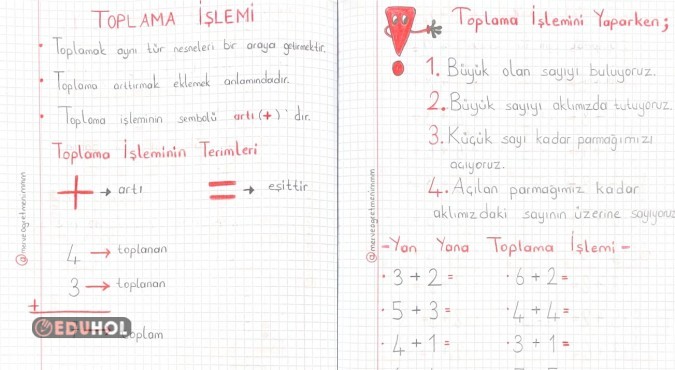 TOPLAMA İŞLEMİ
• Toplamak aynı tür nesneleri bir araya getirmektir.
• Toplama arttırmak eklemek anlamındadır.
• Toplama işleminin sembolü artı (+)'dır.
Toplama İşleminin Terimleri
+ → artı
= → eşittir
4 → toplanan
3 → toplanan
+
toplam
EDUHOL
@merveogretmenimmm
Toplama İşlemini Yaparken;
1. Büyük olan sayıyı buluyoruz.
2. Büyük sayıyı aklımızda tutuyoruz.
3. Küçük sayı kadar parmağımızı
açıyoruz.
4. Açılan parmağımız kadar
aklımızdaki sayının üzerine sayıyoruz
-Yan Yana Toplama İşlemi-
• 3 + 2 = • 6 + 2 =
• 5 + 3 = • 4 + 4 =
• 4 + 1 = • 3 + 1 =
@merveogretmenimmm